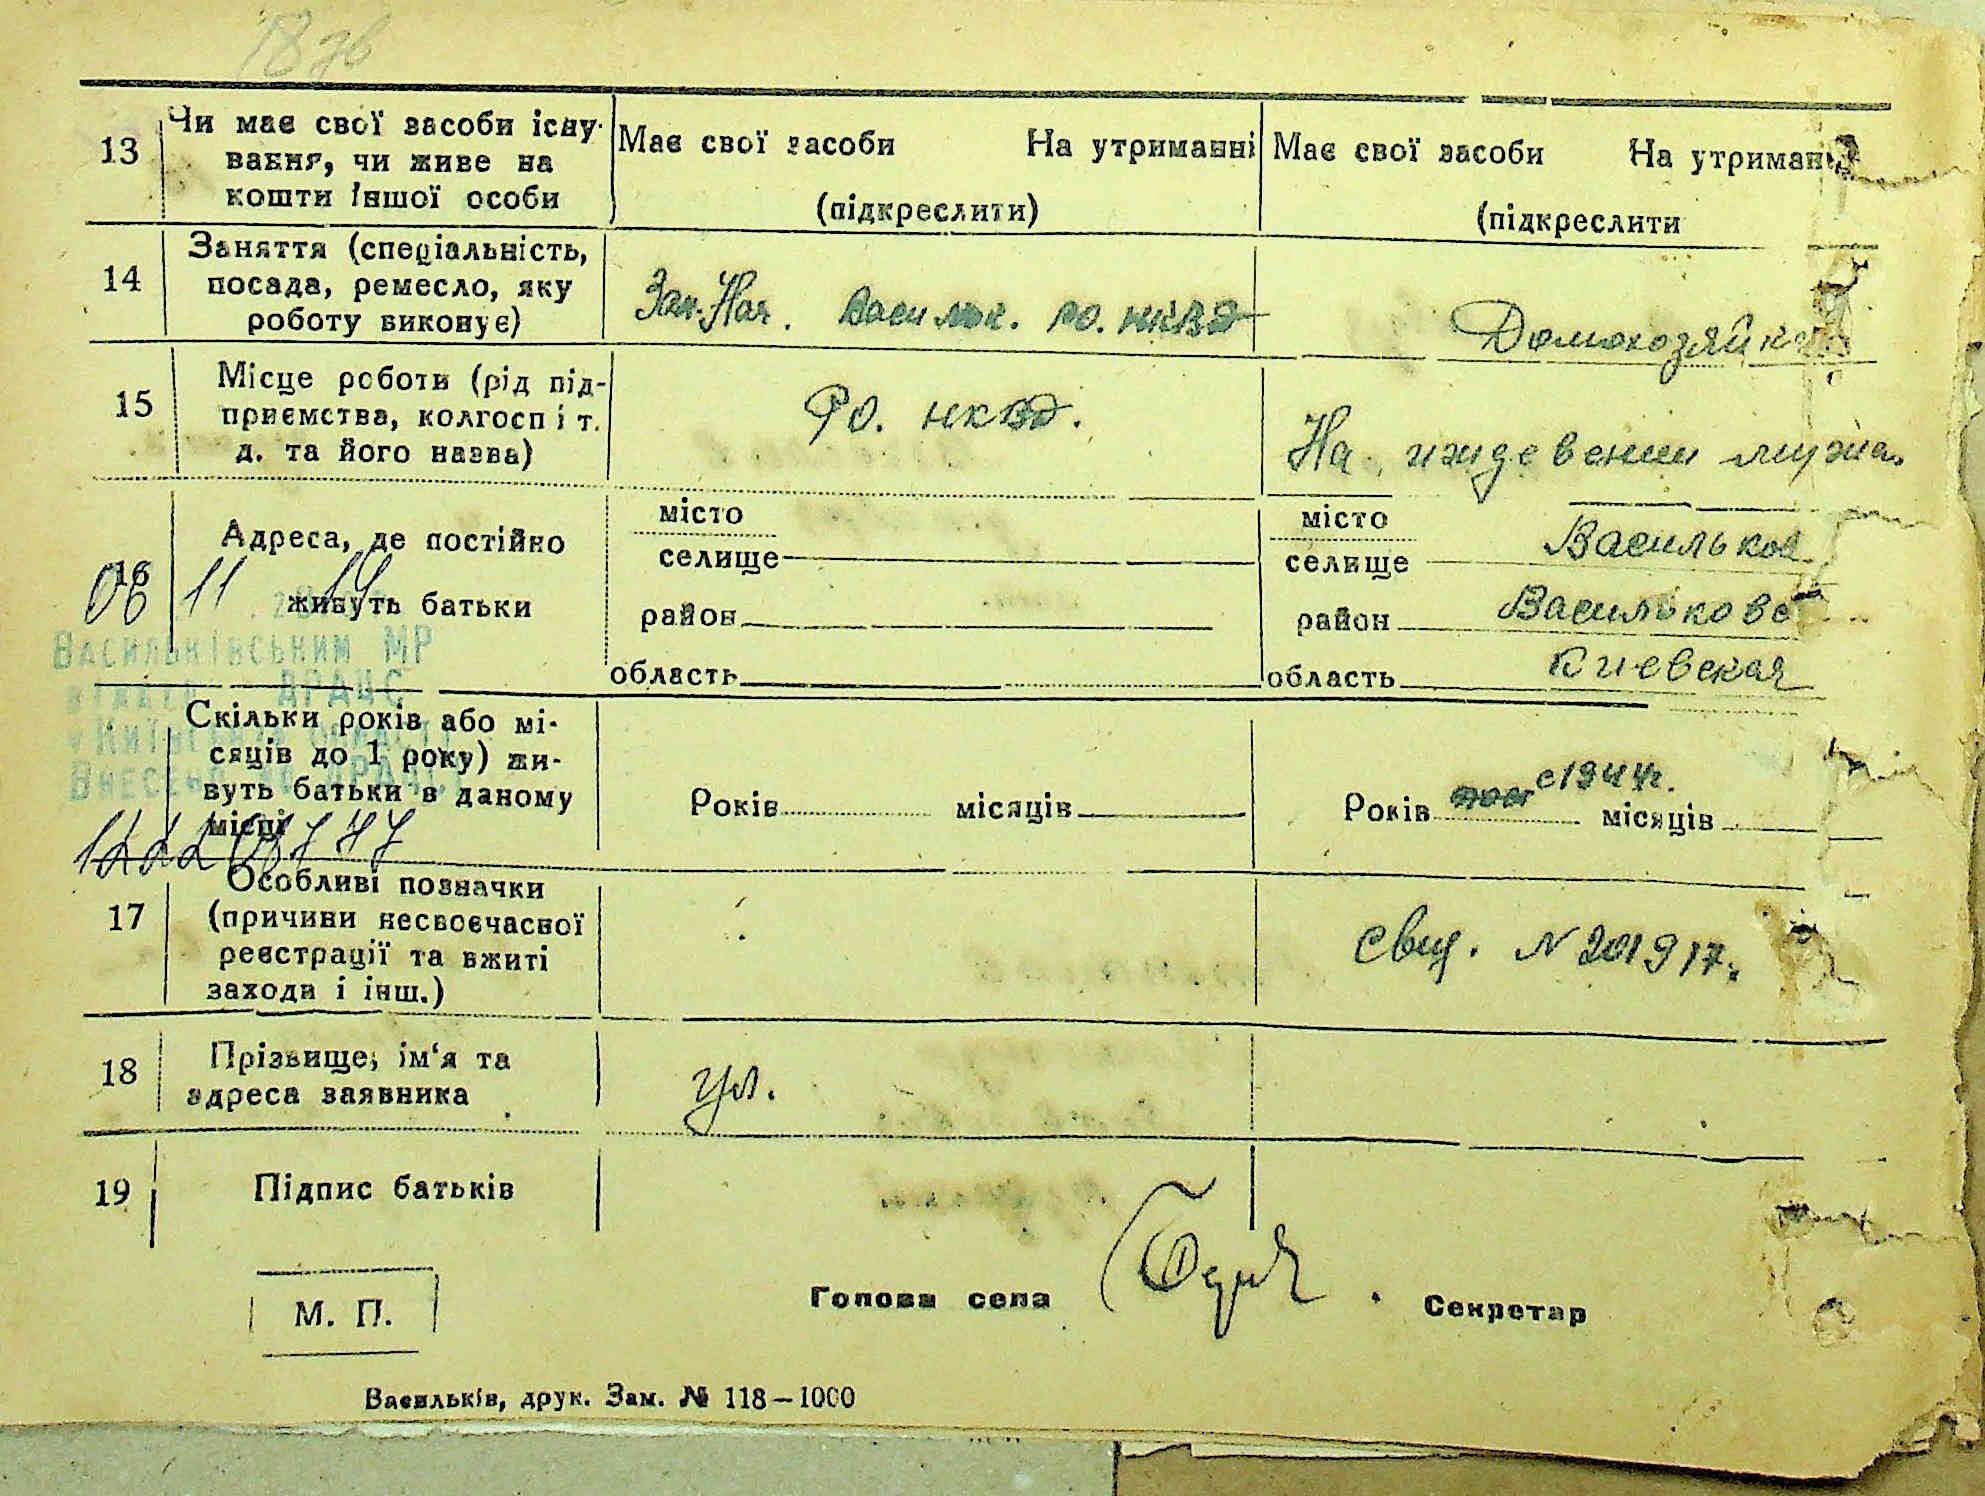 18 зв
13 Чи має свої засоби існу- Має свої засоби На утриманні Має свої засоби На утриман
вання, чи живе на
кошти іншої особи (підкреслити) (підкреслити
14 Заняття (спеціальність,
посада, ремесло, яку Зам. Нач. Васильк. РО. НКВД Домохозяйка
роботу виконує)
15 Місце роботи (рід під- РО. НКВД.
приємства, колгосп і т. На иждевении мужа.
д. та його назва)
16 Адреса, де постійно
живуть батьки
місто місто Васильков
селище селище
район район Васильковс
область область Киевская
06 11 19
Васильківським МР
відділ ДРАЦС
Внесено до ДРАЦС
Скільки років або мі-
сяців до 1 року) жи-
вуть батьки в даному Років місяців Років с 1944 г. місяців
місці
17 Особливі позначки
(причини несвоєчасної свид. N 201917.
реєстрації та вжиті
заходи і інш.)
18 Прізвище, ім'я та
адреса заявника ул.
19 Підпис батьків
М. П. Голова села Секретар
Васильків, друк. Зам. № 118—1000